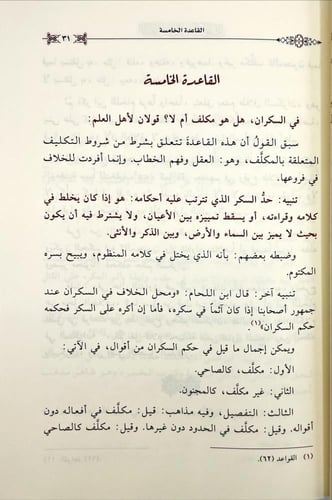 القاعدة الخامسة
٣١
القاعدة الخامسة
في السكران، هل هو مكلف أم لا؟ قولان لأهل العلم:
سبق القولُ أن هذه القاعدةَ تتعلق بشرط من شروط التكليف
المتعلقة بالمكلَّف، وهو: العقل وفهم الخطاب. وإنما أفردت للخلاف
في فروعها.
تنبيه: حدُّ السكر الذي تترتب عليه أحكامه: هو إذا كان يخلط في
كلامه وقراءته، أو يسقط تمييزه بين الأعيان، ولا يشترط فيه أن يكون
بحيث لا يميز بين السماء والأرض، وبين الذكر والأنثى.
وضبطه بعضهم: بأنه الذي يختل في كلامه المنظوم، ويبيح بسره
المكتوم.
تنبيه آخر: قال ابن اللحام: «ومحل الخلاف في السكران عند
جمهور أصحابنا إذا كان آثماً في سكره، فأما إن أكره على السكر فحكمه
حكم السكران»(١).
ويمكن إجمال ما قيل في حكم السكران من أقوال، في الآتي:
الأول: مكلَّف، كالصاحي.
الثاني: غير مكلَّف، كالمجنون.
الثالث: التفصيل، وفيه مذاهب: قيل: مكلَّف في أفعاله دون
أقواله. وقيل: مكلَّف في الحدود دون غيرها. وقيل: مكلَّف كالصاحي
(١) القواعد (٦٢).